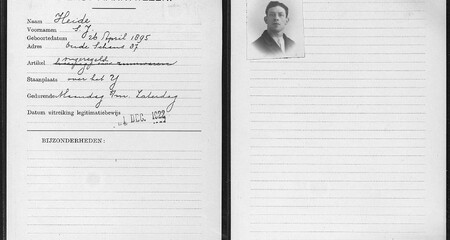 Naam Heide
Voornamen S. J.
Geboortedatum 26 April 1895
Adres Oude Schans 37
ongeregeld
Artikel
Standplaats over het Y
Gedurende Maandag t/m Zaterdag
Datum uitreiking legitimatiebewijs 1 DEC. 1922
BIJZONDERHEDEN: